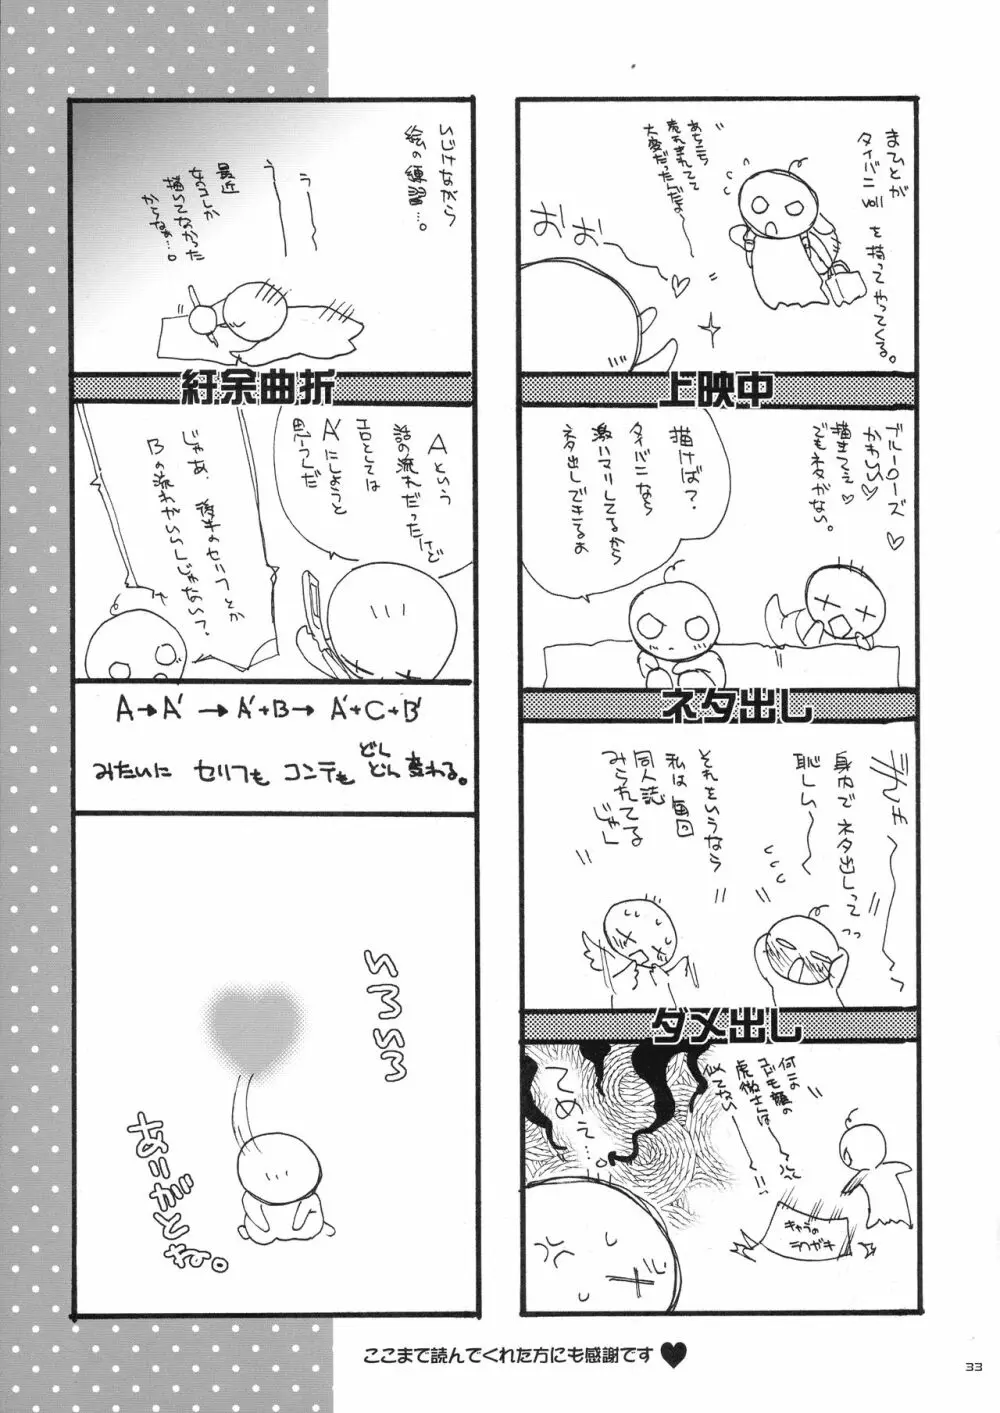 まてひとが
タイバニvol1を
持ってやってくる。
あちこち
売れまれてて
大変だったんだよ
おおー
上映中
ブルーローズ
かわいい
描きてえ
でもネタがない。
描けば?
タイバニなら
激ハマリしてるから
ネタ出しできるよ
ネタ出し
身内でネタ出しって
恥しい〜
それをいうなら
私は毎回
同人誌
みられてる
じゃん
ダメ出し
何この
虎徹士は
似てない
キャラの
ラクガキ
てめぇ…。
いじけながら
絵の練習…。
うっ
うっ
最近
女のコしか
描いてなかった
からなぁ…。
紆余曲折
Aという
話の流れだったけど
エロとしては
A'にしようと
思うんだ
じゃあ、後半のセリフとか
Bの流れがいいんじゃない?
A→A'→A'+B→A'+C+B'
みたいに セリフも コンテも どんどん変わる。
いろいろ
ありがとね。
ここまで読んでくれた方にも感謝です♥
33